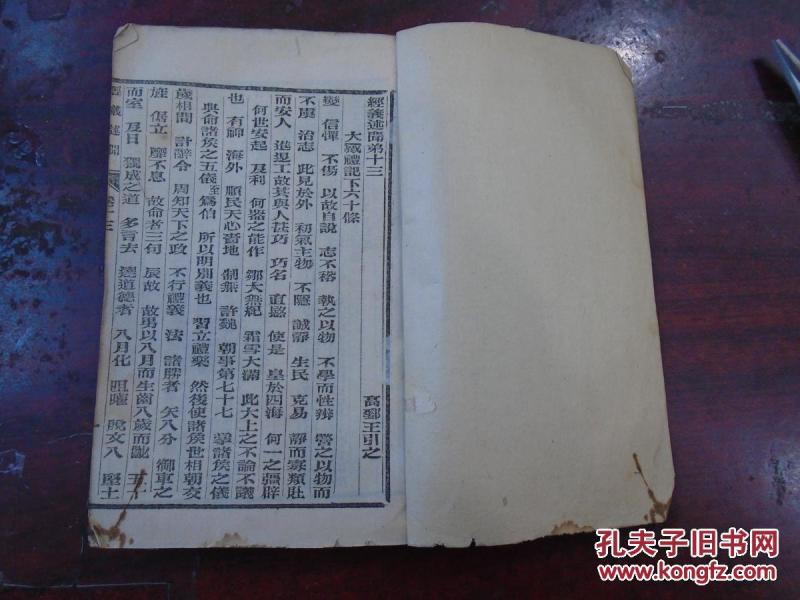 經義述聞弟十三
高郵王引之
大戴禮記下六十條
變 信憚 不傷 以故自說 志不裕 執之以物 不學而性辨 警之以物而
不虞 治志 此見於外 初氣主物 不隱 誠靜 生民 克易 靜而寡類壯
而安人 進退工故其與人甚巧 巧名 直愍 使是 皇於四海 何一之彊辟
何世安起 及利 何器之能作 鄒大無紀 霜雪大滿 此大上之不論不議
也 有神 海外 順民天心嗇地 制無 許魏 朝事第七十七 掌諸侯之儀
與命諸侯之五儀 爲伯 所以明別義也 習立禮樂 然後使諸侯世相朝交
歲相問 計辭令 周知天下之政 不行禮義 法 諸醳者 矢八分 御車之
旌 倨立 壓不息 故命者三句 辰故 故男以八月而生齒八歲而齔 五十
而室 及日 獨成之道 多言去 達道德者 八月化 咀嚾 晚文八 堅土
經義述聞 卷十三
孔夫子旧书网
www.kongfz.com